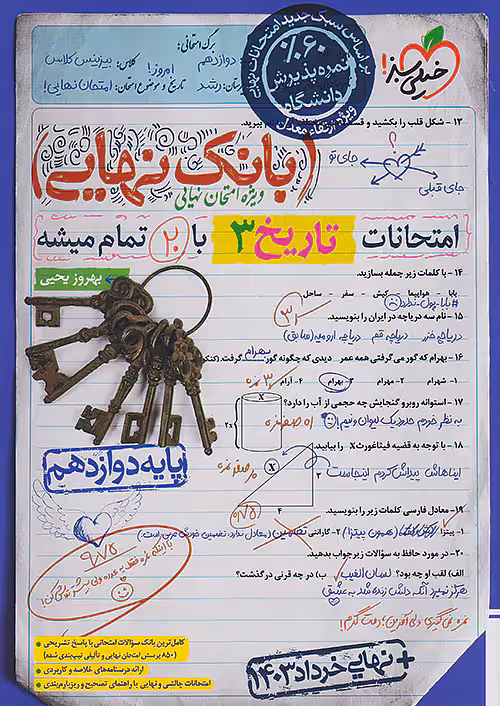 برگ امتحانی:
دوازدهم
امروز!
کلاس: بیزینس کلاس
رشد
تاریخ و موضوع امتحان: امتحان نهایی!
براساس سبک جدید امتحانات نهایی
٪۶۰
نمره پذیرش
دانشگاه
ویژه ارتقاء معدل
خیلی سبز!
۱۳ - شکل قلب را بکشید و
ببرید.
جای تو
جای قبلی
(بانک نهایی)
ویژه امتحان نهایی
امتحانات تاریخ ۳ با ۲۰ تمام میشه
بهروز یحیی
۱۴ - با کلمات زیر جمله بسازید.
بابا - هواپیما - کیش - سفر - ساحل
#بابا_پول_ندارد
۱۵ - نام سه دریاچه در ایران را بنویسید.
دریاچه خزر دریاچه قم دریاچه ارومیه (سابق)
۱۶ - بهرام که گور می‌گرفتی همه عمر دیدی که چگونه گور بهرام گرفت.
۱- شهرام ۲- مهرام ۳- بهرام ۴- آرام
۱۷ - استوانه روبرو گنجایش چه حجمی از آب را دارد؟
به نظر خودم حدود یک لیوان و نیم!
X
2x
۱۸ - با توجه به قضیه فیثاغورث X را بیابید.
ایناهاش پیداش کردم اینجاست
X
۲
۴
پایه دوازدهم
۱۹ - معادل فارسی کلمات زیر را بنویسید.
۱- پیتزا (همون پیتزا) ۲- گارانتی تضمین (معادل ندارد، تضمین خودش عربی است.)
۲۰ - در مورد حافظ به سؤالات زیر جواب بدهید.
الف) لقب او چه بود؟ لسان الغیب ب) در چه قرنی در گذشت؟
هرگز نمیرد آنکه دلش زنده شد به عشق
۹/۷۵
نمره نمی‌گیری ولی آفرین! دمت گرم!
کامل‌ترین بانک سؤالات امتحانی با پاسخ تشریحی
(۸۵۰ پرسش امتحان نهایی و تألیفی تیپ‌بندی شده)
ارائه درسنامه‌های خلاصه و کاربردی
امتحانات چالشی و نهایی با راهنمای تصحیح و ریزبارم‌بندی
+ نهایی خرداد ۱۴۰۳